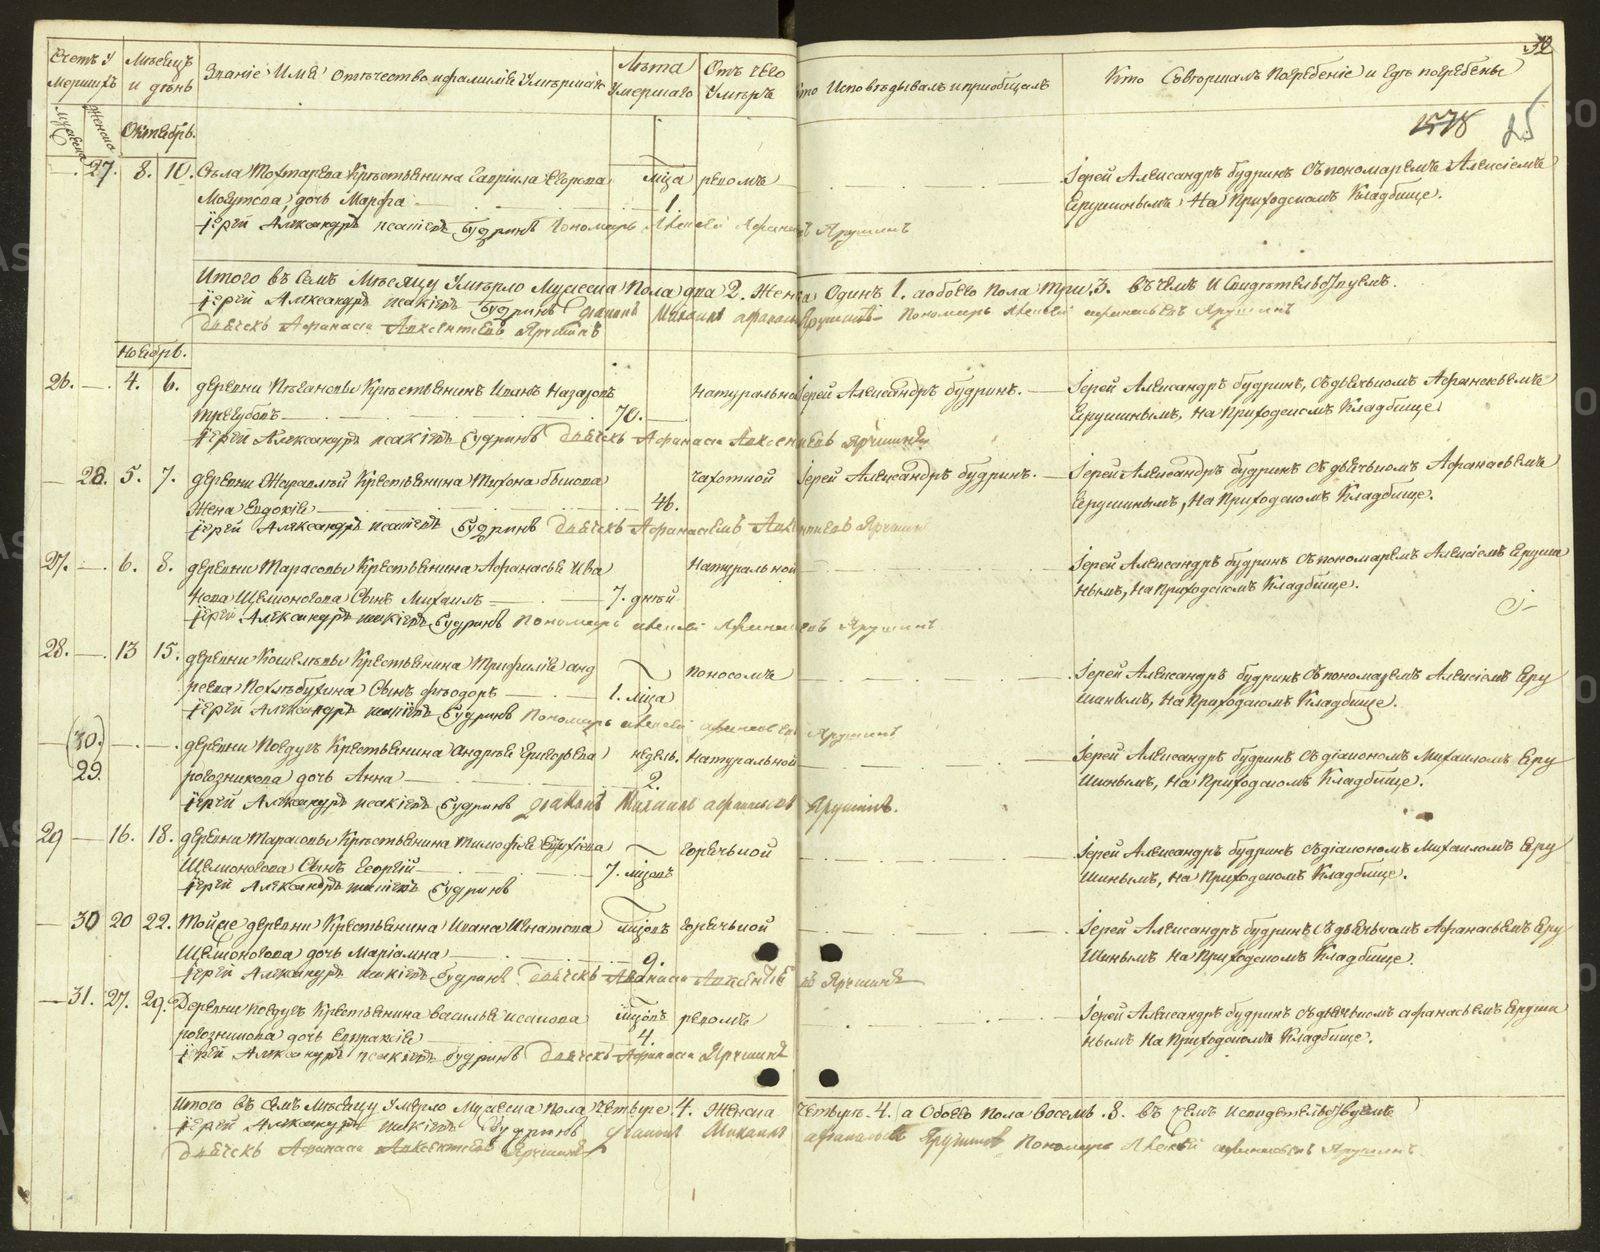 Счетъ Умершихъ
Мѣсяцъ и день
Званіе Имя Отечество и фамилія Умершаго
Лѣта Умершаго
Отъ чего Умеръ
Кто Исповѣдывалъ и приобщалъ
Кто Совершалъ Погребеніе и гдѣ погребены
Октябрь.
1578
25
27. 8. 10. Села Тохтарева Крестьянина Гавріила Егорова мѣсяца ревомъ Іерей Александръ будринъ Съ пономаремъ Алексіемъ
дочь Марфа 1. Ерушинымъ На Приходскомъ Кладбище.
іерей Александръ исакіевъ Будринъ Пономарь Алексей Афанасьевъ Ярушинъ
Итого въ семъ Мѣсяцу Умерло Мужеска Пола два 2. Женска Одинъ 1. а обоего Пола Три. 3. въ чемъ И Свидетельствуемъ.
іерей Александръ исакіевъ Будринъ диаконъ Михаилъ афанасьевъ Ярушинъ Пономарь Алексей афанасьевъ Ярушинъ
дьячекъ Афанасій Авксентіевъ Ярушинъ
Ноябрь.
26. 4. 6. деревни Крестьянинъ Иванъ Назаровъ Натуральной Іерей Александръ будринъ. Іерей Александръ будринъ, Съ дьячькомъ Афанасьемъ
Трегубовъ 70. Ерушинымъ, На Приходскомъ Кладбище.
іерей Александръ исакіевъ Будринъ дьячекъ Афанасій Авксентіевъ Ярушинъ
28. 5. 7. деревни Крестьянина Тихона быкова Чахоткой Іерей Александръ будринъ. Іерей Александръ будринъ Съ дьячькомъ Афанасьемъ
Жена Евдокія 46. Ерушинымъ, На Приходскомъ Кладбище.
іерей Александръ исакіевъ Будринъ дьячекъ Афанасіемъ Авксентіевъ Ярушинъ
27. 6. 8. деревни Тарасовы Крестьянина Афанасья Ива Натуральной Іерей Александръ будринъ Съ пономаремъ Алексіемъ Еруши
нова Щелконогова Сынъ Михаилъ 7. дней нымъ, На Приходскомъ Кладбище.
іерей Александръ исакіевъ Будринъ Пономарь алексей Афанасьевъ Ярушинъ
28. 13 15. деревни Кошелевы Крестьянина Трифилія анд Поносомъ Іерей Александръ будринъ Съ пономаремъ Алексіемъ Еру
реева Похлѣбухина Сынъ Ѳеодоръ 1. мѣсяца шинымъ, На Приходскомъ Кладбище.
іерей Александръ исакіевъ Будринъ Пономарь алексей афанасьевъ Ярушинъ
(30.) деревни Поедугъ Крестьянина Андрея Григорьева недель. Натуральной Іерей Александръ будринъ Съ діакономъ Михаиломъ Еру
29. рогозникова дочь Анна 2. шинымъ, На Приходскомъ Кладбище.
іерей Александръ исакіевъ Будринъ диаконъ Михаилъ афанасьевъ Ярушинъ.
29 16. 18. деревни Тарасовы Крестьянина Тимофея Горячькой Іерей Александръ будринъ Съ діакономъ Михаиломъ Еру
Щелконогова Сынъ Георгій 7. мѣсяцовъ шинымъ, На Приходскомъ Кладбище.
іерей Александръ исакіевъ Будринъ
30 20 22. Тойже деревни Крестьянина Ивана Игнатова мѣсяцовъ Горячькой Іерей Александръ будринъ Съ дьячькомъ Афанасьемъ Еру
Щелконогова дочь Маріамна 9. Шинымъ На Приходскомъ Кладбище.
іерей Александръ исакіевъ Будринъ дьячекъ Афанасій Авксентіевъ Ярушинъ
31. 27. 29. Деревни поедугъ Крестьянина василья исакова мѣсяцовъ ревомъ Іерей Александръ будринъ Съ дьячькомъ афанасьемъ Еруши
рогозникова дочь Евпраксія 4. нымъ На Приходскомъ Кладбище.
іерей Александръ исакіевъ будринъ дьячекъ Афанасій Ярушинъ
Итого въ семъ Мѣсяцу Умерло Мужеска пола Четыре 4. Женска Четыре. 4. а Обоего пола восемь. 8. въ чемъ и свидетельствуемъ
іерей Александръ исакіевъ Будринъ диаконъ Михаилъ афанасьевъ Ярушинъ Пономарь Алексей афанасьевъ Ярушинъ
дьячекъ Афанасій Авксентіевъ Ярушинъ